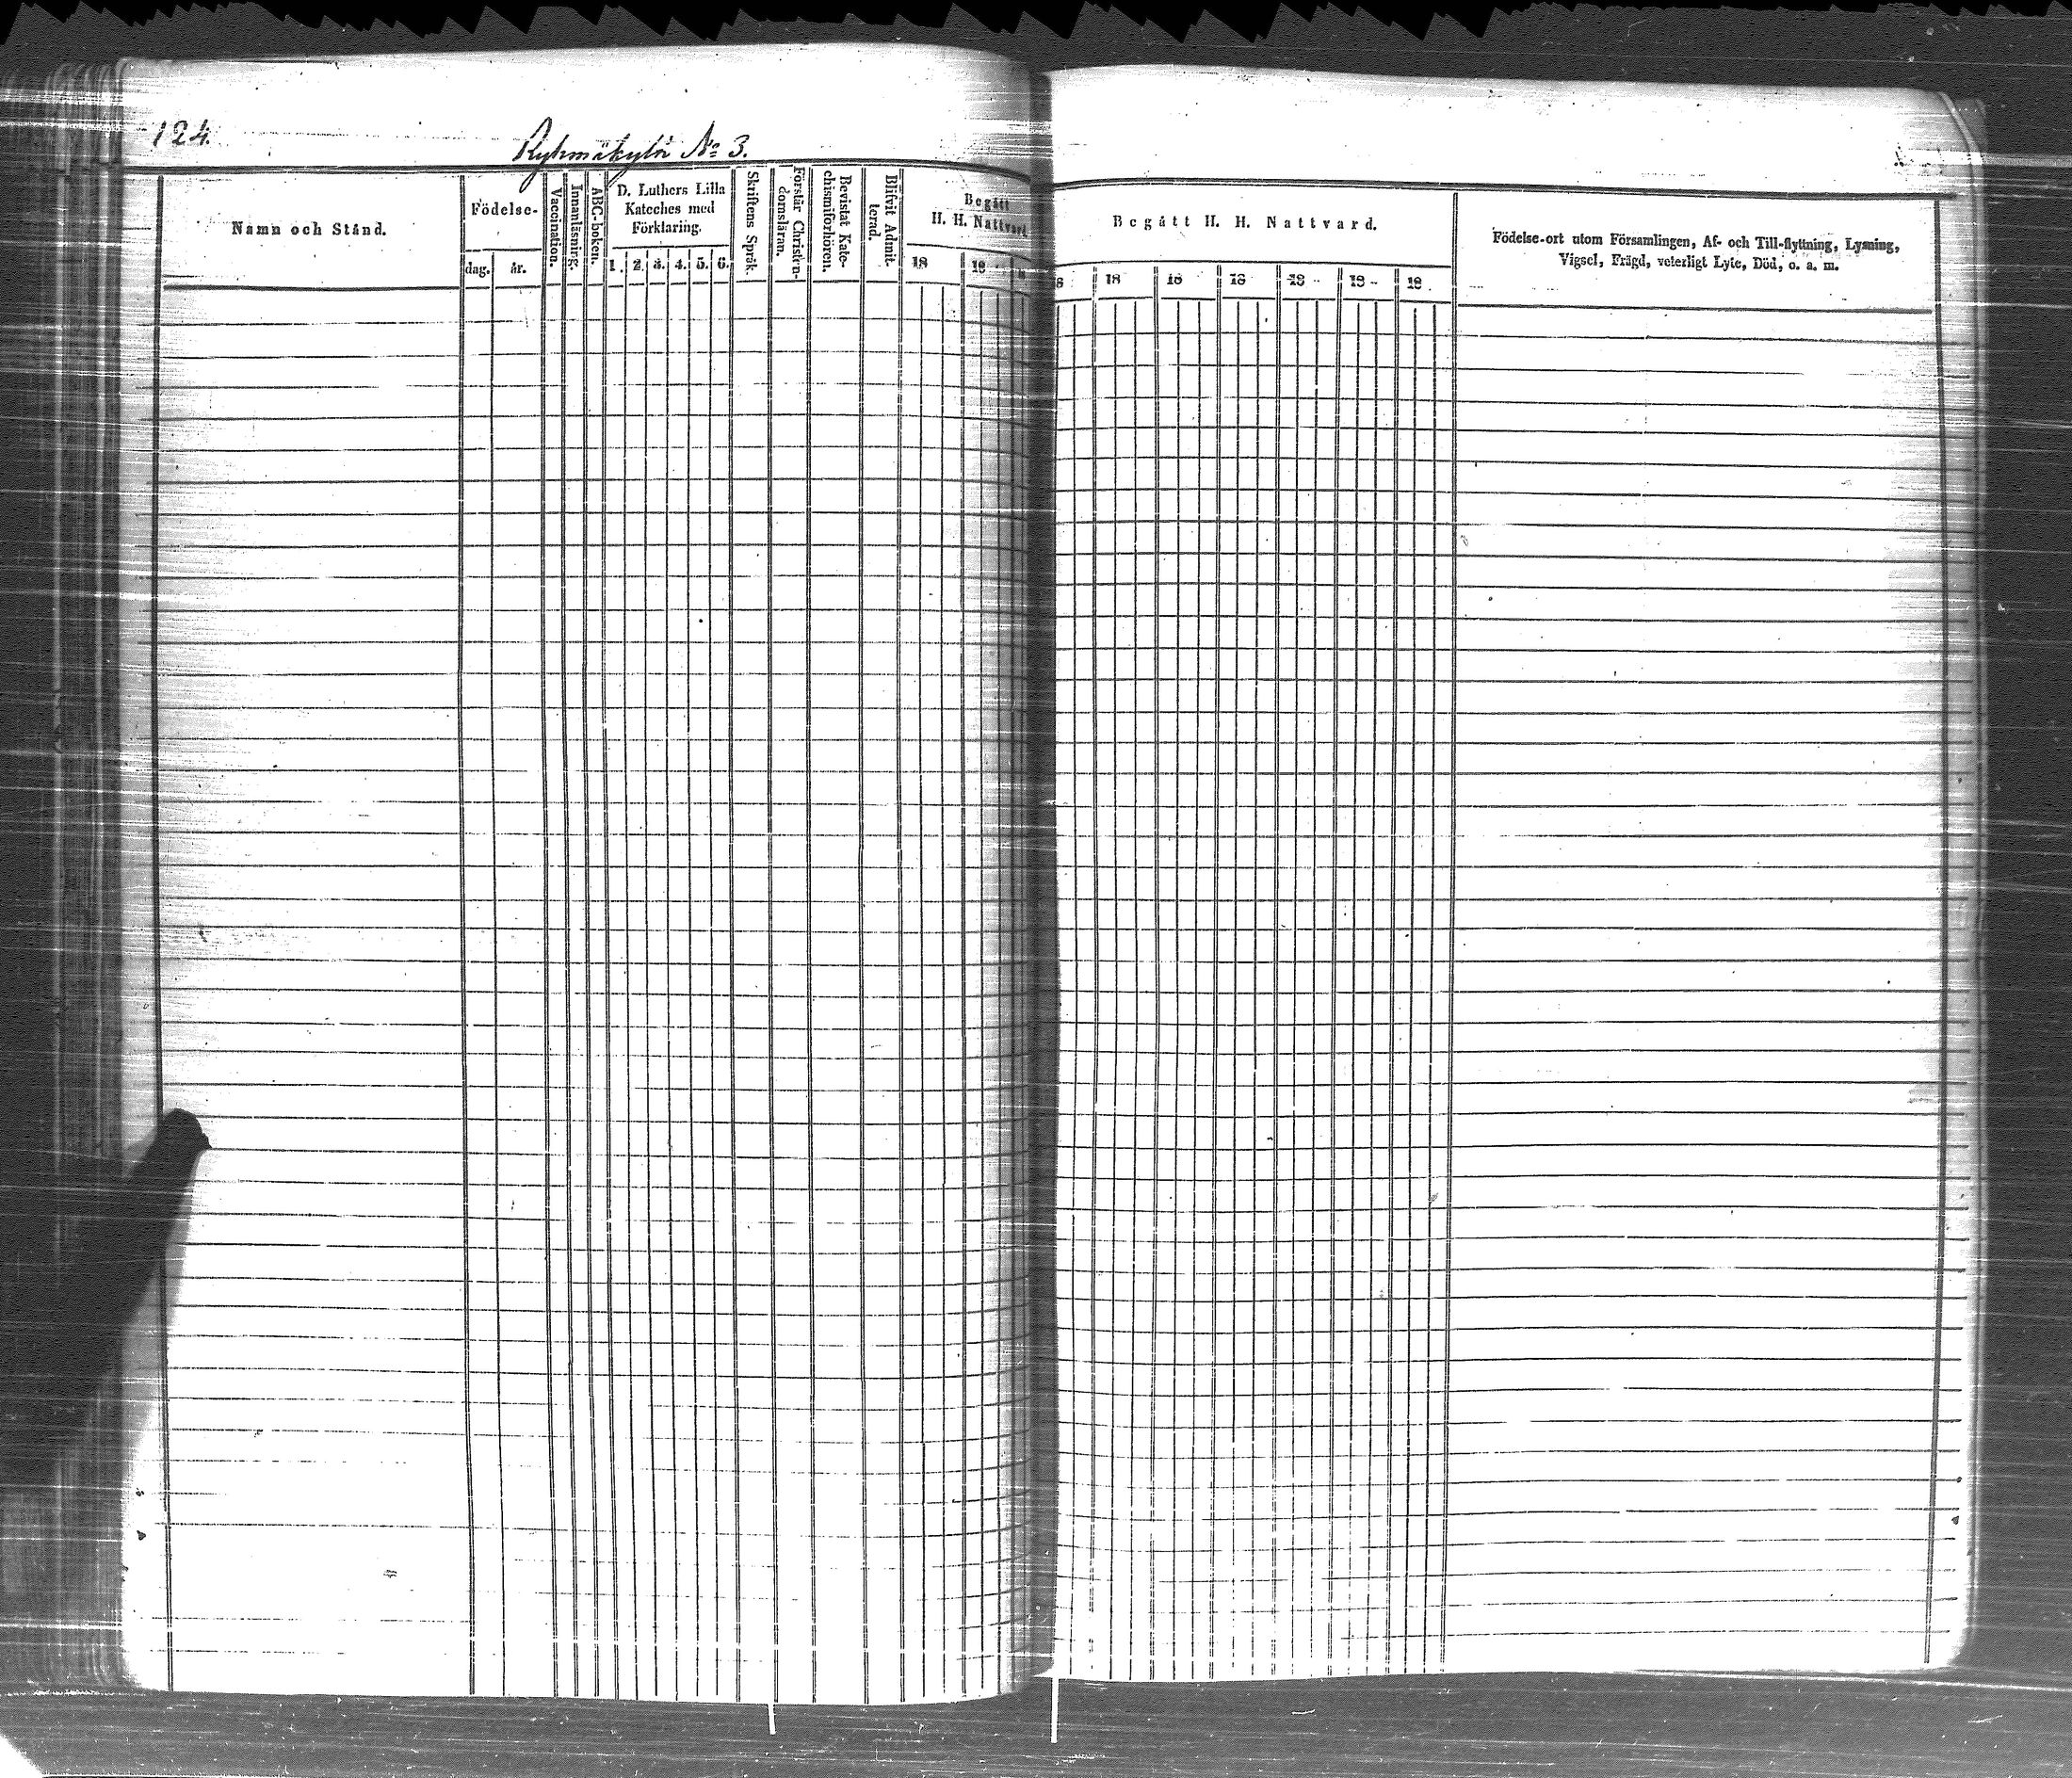 124.
Ryhmäkylä No 3.
Namn och Stånd.
Födelse-
dag.
år.
Vaccination.
Innanläsning.
ABC-boken.
D. Luthers Lilla
Kateches med
Förklaring.
1. 2. 3. 4. 5. 6.
Skriftens Språk.
Förstår Christen-
domsläran.
Bevistat Kate-
chismiförhören.
Blifvit Admit-
terad.
Begått
H. H. Nattvard.
18 18
Begått H. H. Nattvard.
18 18 18 18 18 18
Födelse-ort utom Församlingen, Af- och Till-flyttning, Lysning,
Vigsel, Frägd, veterligt Lyte, Död, o. a. m.